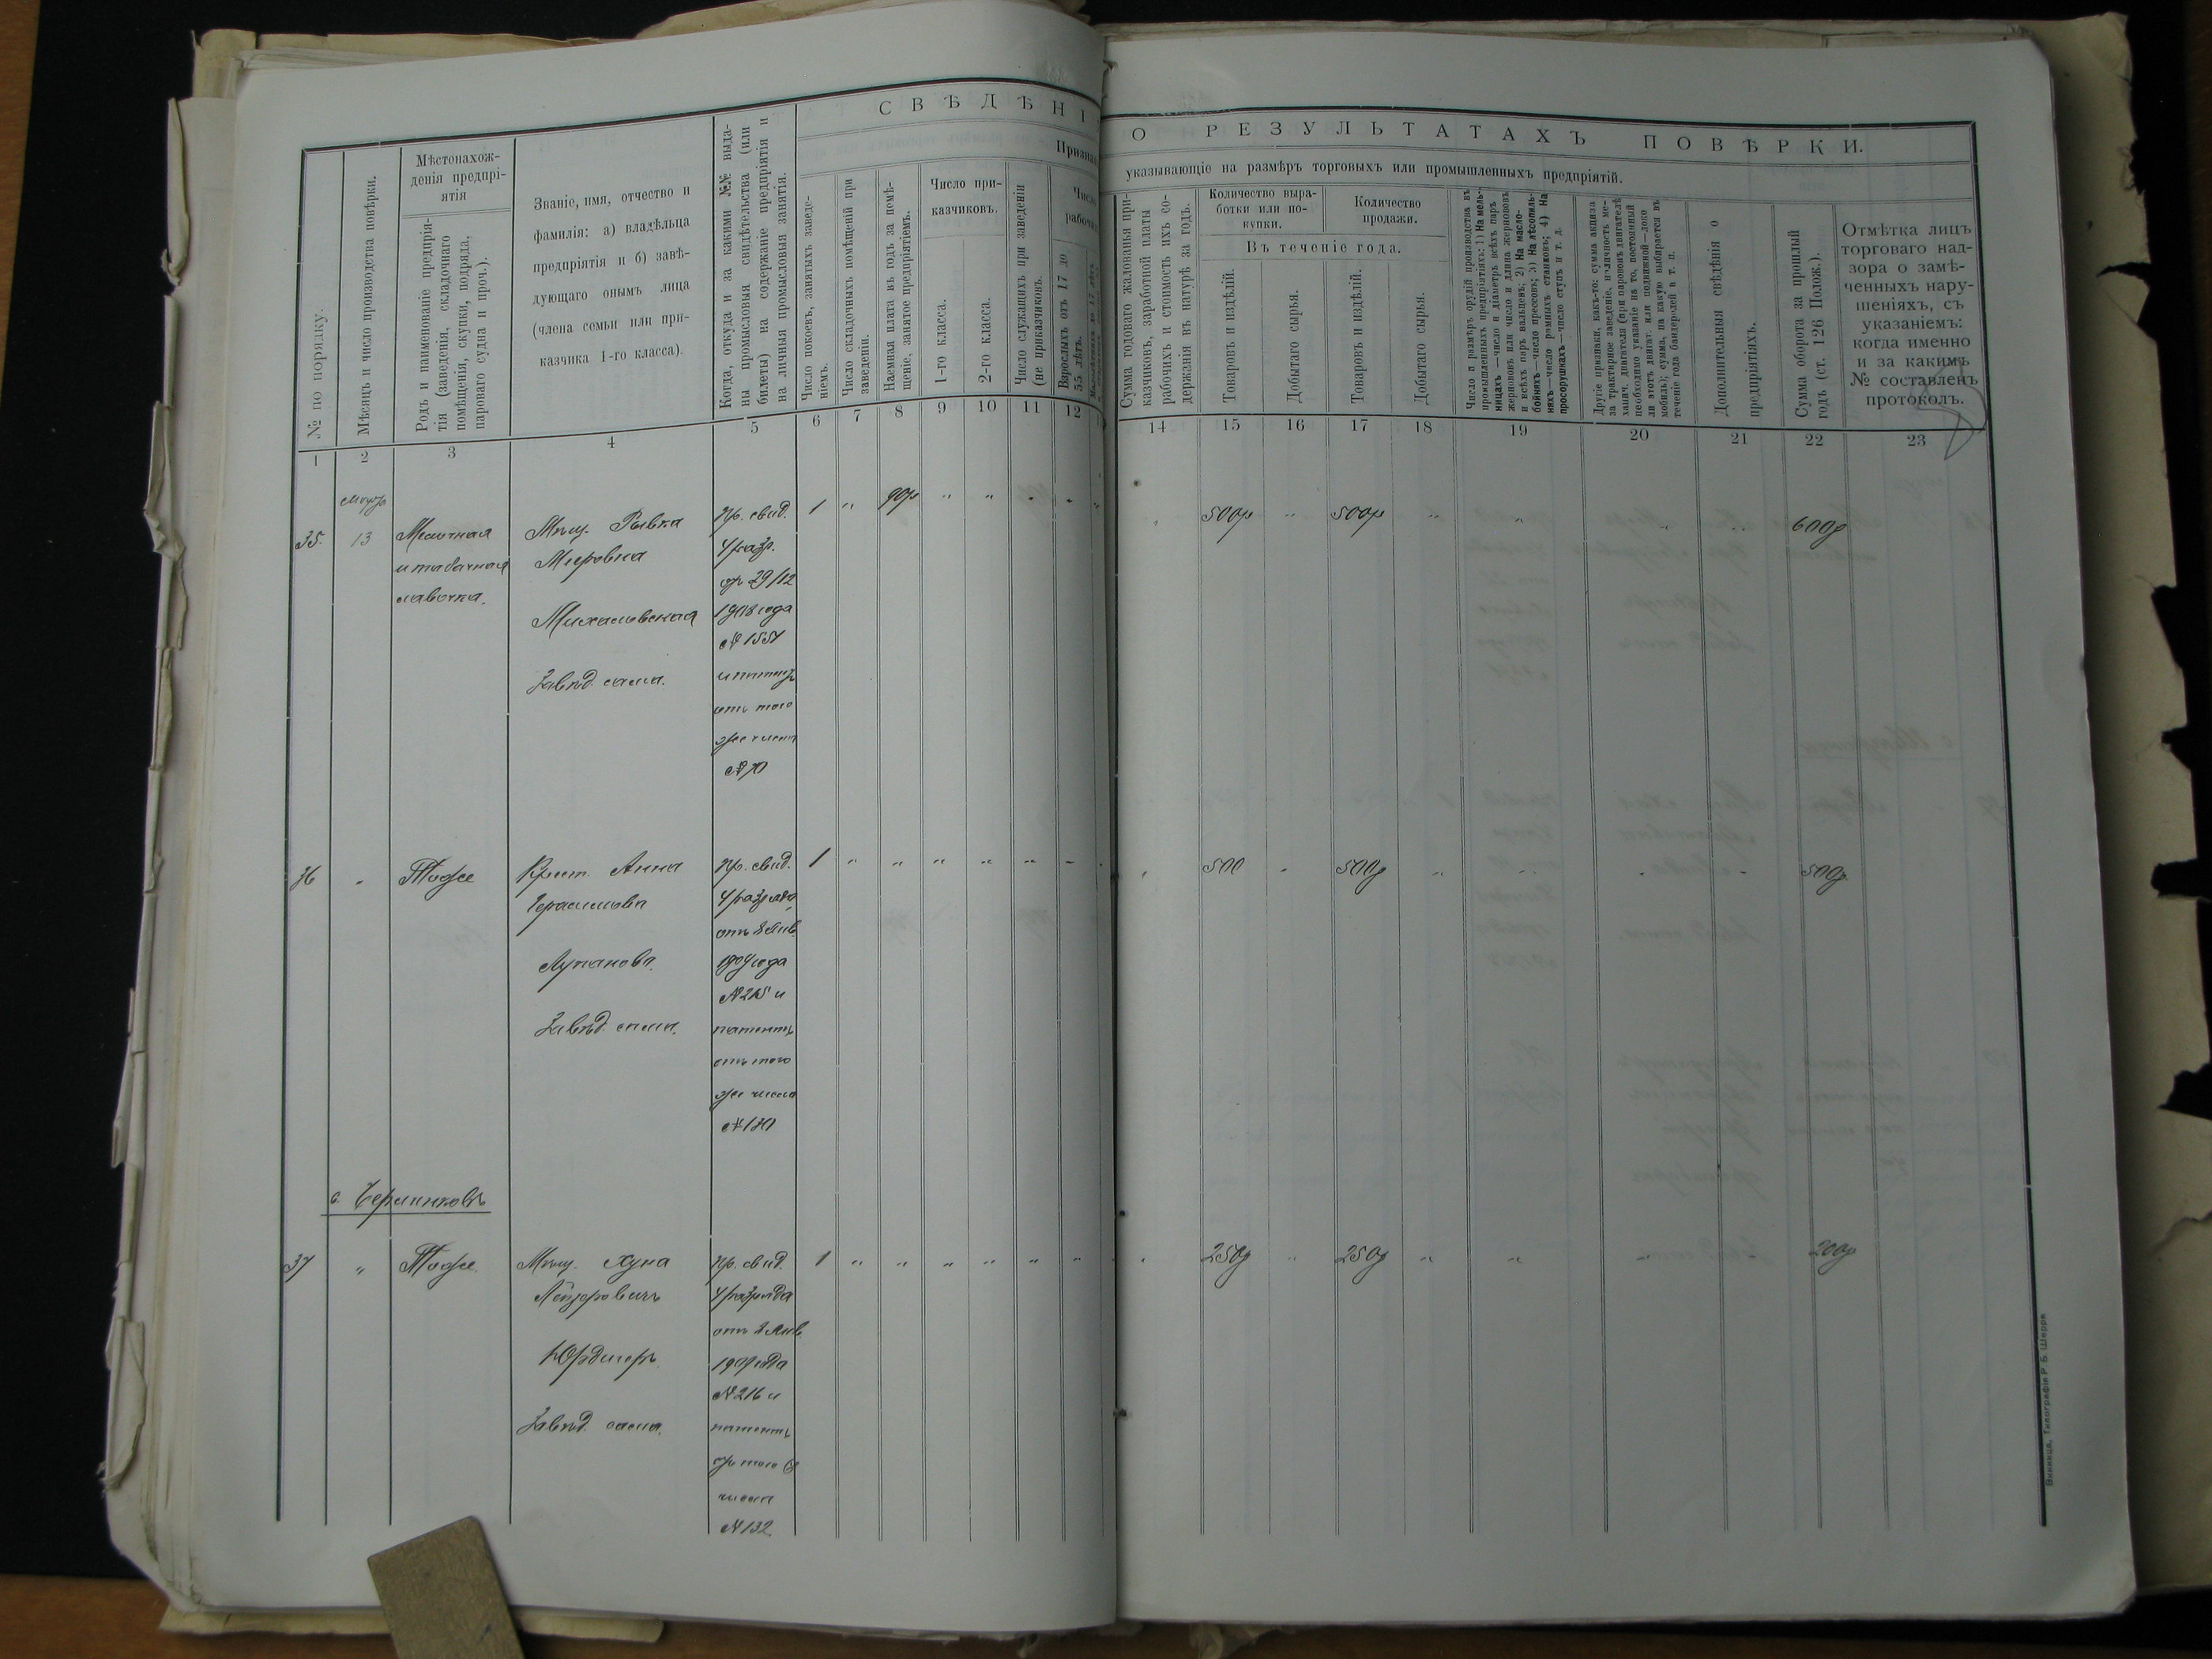 СВѢДѢНІ
О РЕЗУЛЬТАТАХЪ ПОВѢРКИ.
Призна
указывающіе на размѣръ торговыхъ или промышленныхъ предпріятій.
№ по порядку.
Мѣсяцъ и число производства повѣрки.
Мѣстонахож-
денія предпрі-
ятія
Родъ и наименованіе предпрія-
тія (заведенія, складочнаго
помѣщенія, скупки, подряда,
пароваго судна и проч.).
Званіе, имя, отчество и
фамилія: а) владѣльца
предпріятія и б) завѣ-
дующаго онымъ лица
(члена семьи или при-
казчика 1-го класса).
Когда, откуда и за какими №№ выда-
ны промысловыя свидѣтельства (или
билеты) на содержаніе предпріятія и
на личныя промысловыя занятія.
Число покоевъ, занятыхъ заведе-
ніемъ.
Число складочныхъ помѣщеній при
заведеніи.
Наемная плата въ годъ за помѣ-
щеніе, занятое предпріятіемъ.
Число при-
казчиковъ.
1-го класса.
2-го класса.
Число служащихъ при заведеніи
(не приказчиковъ.
Число
рабочи
Взрослыхъ отъ 17 до
55 лѣтъ.
Сумма годоваго жалованья при-
казчиковъ, заработной платы
рабочихъ и стоимость ихъ со-
держанія въ натурѣ за годъ.
Количество выра-
ботки или по-
купки.
Количество
продажи.
Въ теченіе года.
Товаровъ и издѣлій.
Добытаго сырья.
Товаровъ и издѣлій.
Добытаго сырья.
Число и размѣръ орудій производства въ
промышленныхъ предпріятіяхъ: 1) На мель-
ницахъ—число и діаметръ всѣхъ паръ
жернововъ или число и длина жернововъ
и всѣхъ паръ вальцевъ; 2) На масло-
бойняхъ—число прессовъ; 3) На лѣсопиль-
няхъ—число рамныхъ станковъ; 4) На
просорушкахъ—число ступъ и т. д.
Другіе признаки, какъ-то: сумма акциза
за трактирное заведеніе, наличность ме-
ханич. двигателя (при паровомъ двигателѣ
необходимо указаніе на то, постоянный
ли этотъ двигат. или подвижной—локо
мобиль); сумма, на какую выбирается въ
теченіе года бандеролей и т. п.
Дополнительныя свѣдѣнія о
предпріятіяхъ.
Сумма оборота за прошлый
годъ (ст. 126 Полож.).
Отмѣтка лицъ
торговаго над-
зора о замѣ-
ченныхъ нару-
шеніяхъ, съ
указаніемъ:
когда именно
и за какимъ
№ составленъ
протоколъ.
1 2 3 4 5 6 7 8 9 10 11 12
14 15 16 17 18 19 20 21 22 23
35. 13 Мелочная Мѣщ. Рывка Пр. свид. 1 " 90р " " " "
500р " 500р " " " " 600р
и табачная Мееровна 4 разр.
лавочка. от 29/12
Михаловская 1908 года
№ 1551
Завѣд. сама.
отъ того
же числа
№ 70
36 " Тоже Крест. Анна Пр. свид. 1 " " " " " "
500 " 500р " " " " 500р
Герасимова 4 разряда
отъ 8 Янв.
Лупанова. 1909 года
№ 215 и
Завѣд. сама. патентъ
отъ того
же числа
№ 130
с.
37 " Тоже Мѣщ. Хуна Пр. свид. 1 " " " " " "
250р " 250р " " " " 200р
4 разряда
отъ 2 Янв.
1909 года
№ 216 и
Завѣд. сама. патентъ
числа
№ 132
Винница, Типографія Р. Б. Шерра